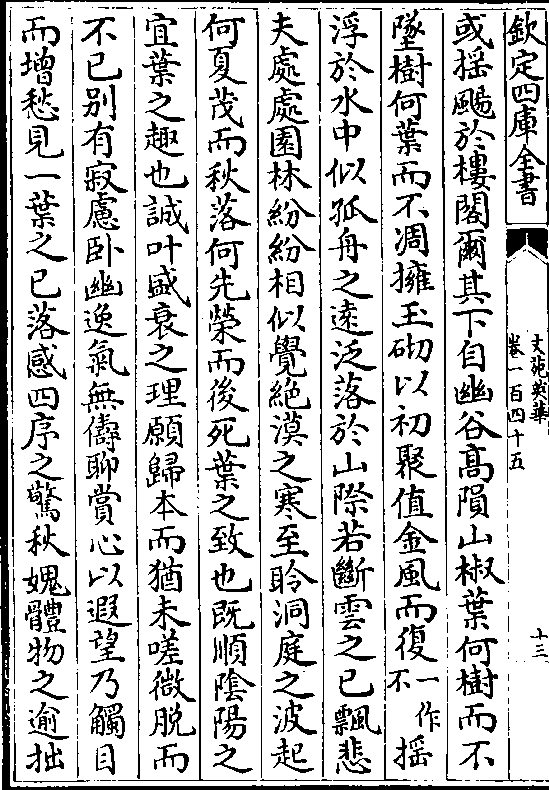 欽定四庫全書
文苑英華
卷一百四十五
十三
或揺颺於樓閣爾其下自幽谷髙隕山椒葉何樹而不
墜樹何葉而不凋擁玉砌以初聚值金風而復一作不揺
浮於水中似孤舟之逺泛落於山際若斷雲之已飄悲
夫處處園林紛紛相似覺絶漠之寒至聆洞庭之波起
何夏茂而秋落何先榮而後死葉之致也既順隂陽之
宜葉之趣也誠叶盛衰之理願歸本而猶未嗟微脱而
不已别有寂慮卧幽逸氣無儔聊賞心以遐望乃觸目
而増愁見一葉之已落感四序之驚秋媿體物之逾拙